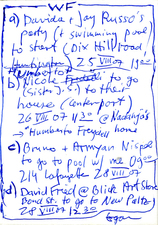 WF
a) Davida + Jay Russo's
party (+ swimming) pool
to start (Dix Hill road,
25 VIII 07 19:00
b) Nicole
to go (Sister J.'s) to their
house (Centerport)
26 VIII 07 11:30 @ Nadanja's
→ Humberto Freydell home
c) Bruno + Armyan Nispel
to go to pool w/ 0400
214 Lafayette 28 VIII 07
d) David Fried @ Blick Art Store
Bond St. to go to New Paltz
28 VIII 07 12:30